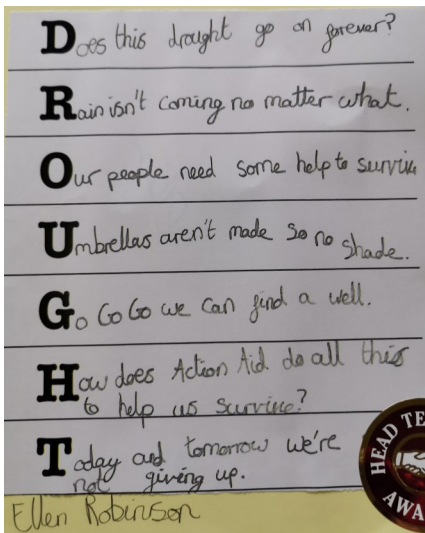 Does this drought go on forever?
Rain isn't coming no matter what.
Our people need some help to survive
Umbrellas aren't made so no shade.
Go Go Go we can find a well.
How does Action Aid do all this
to help us survive?
Today and tomorrow we're
not giving up.
HEAD TE
AWA
Ellen Robinson